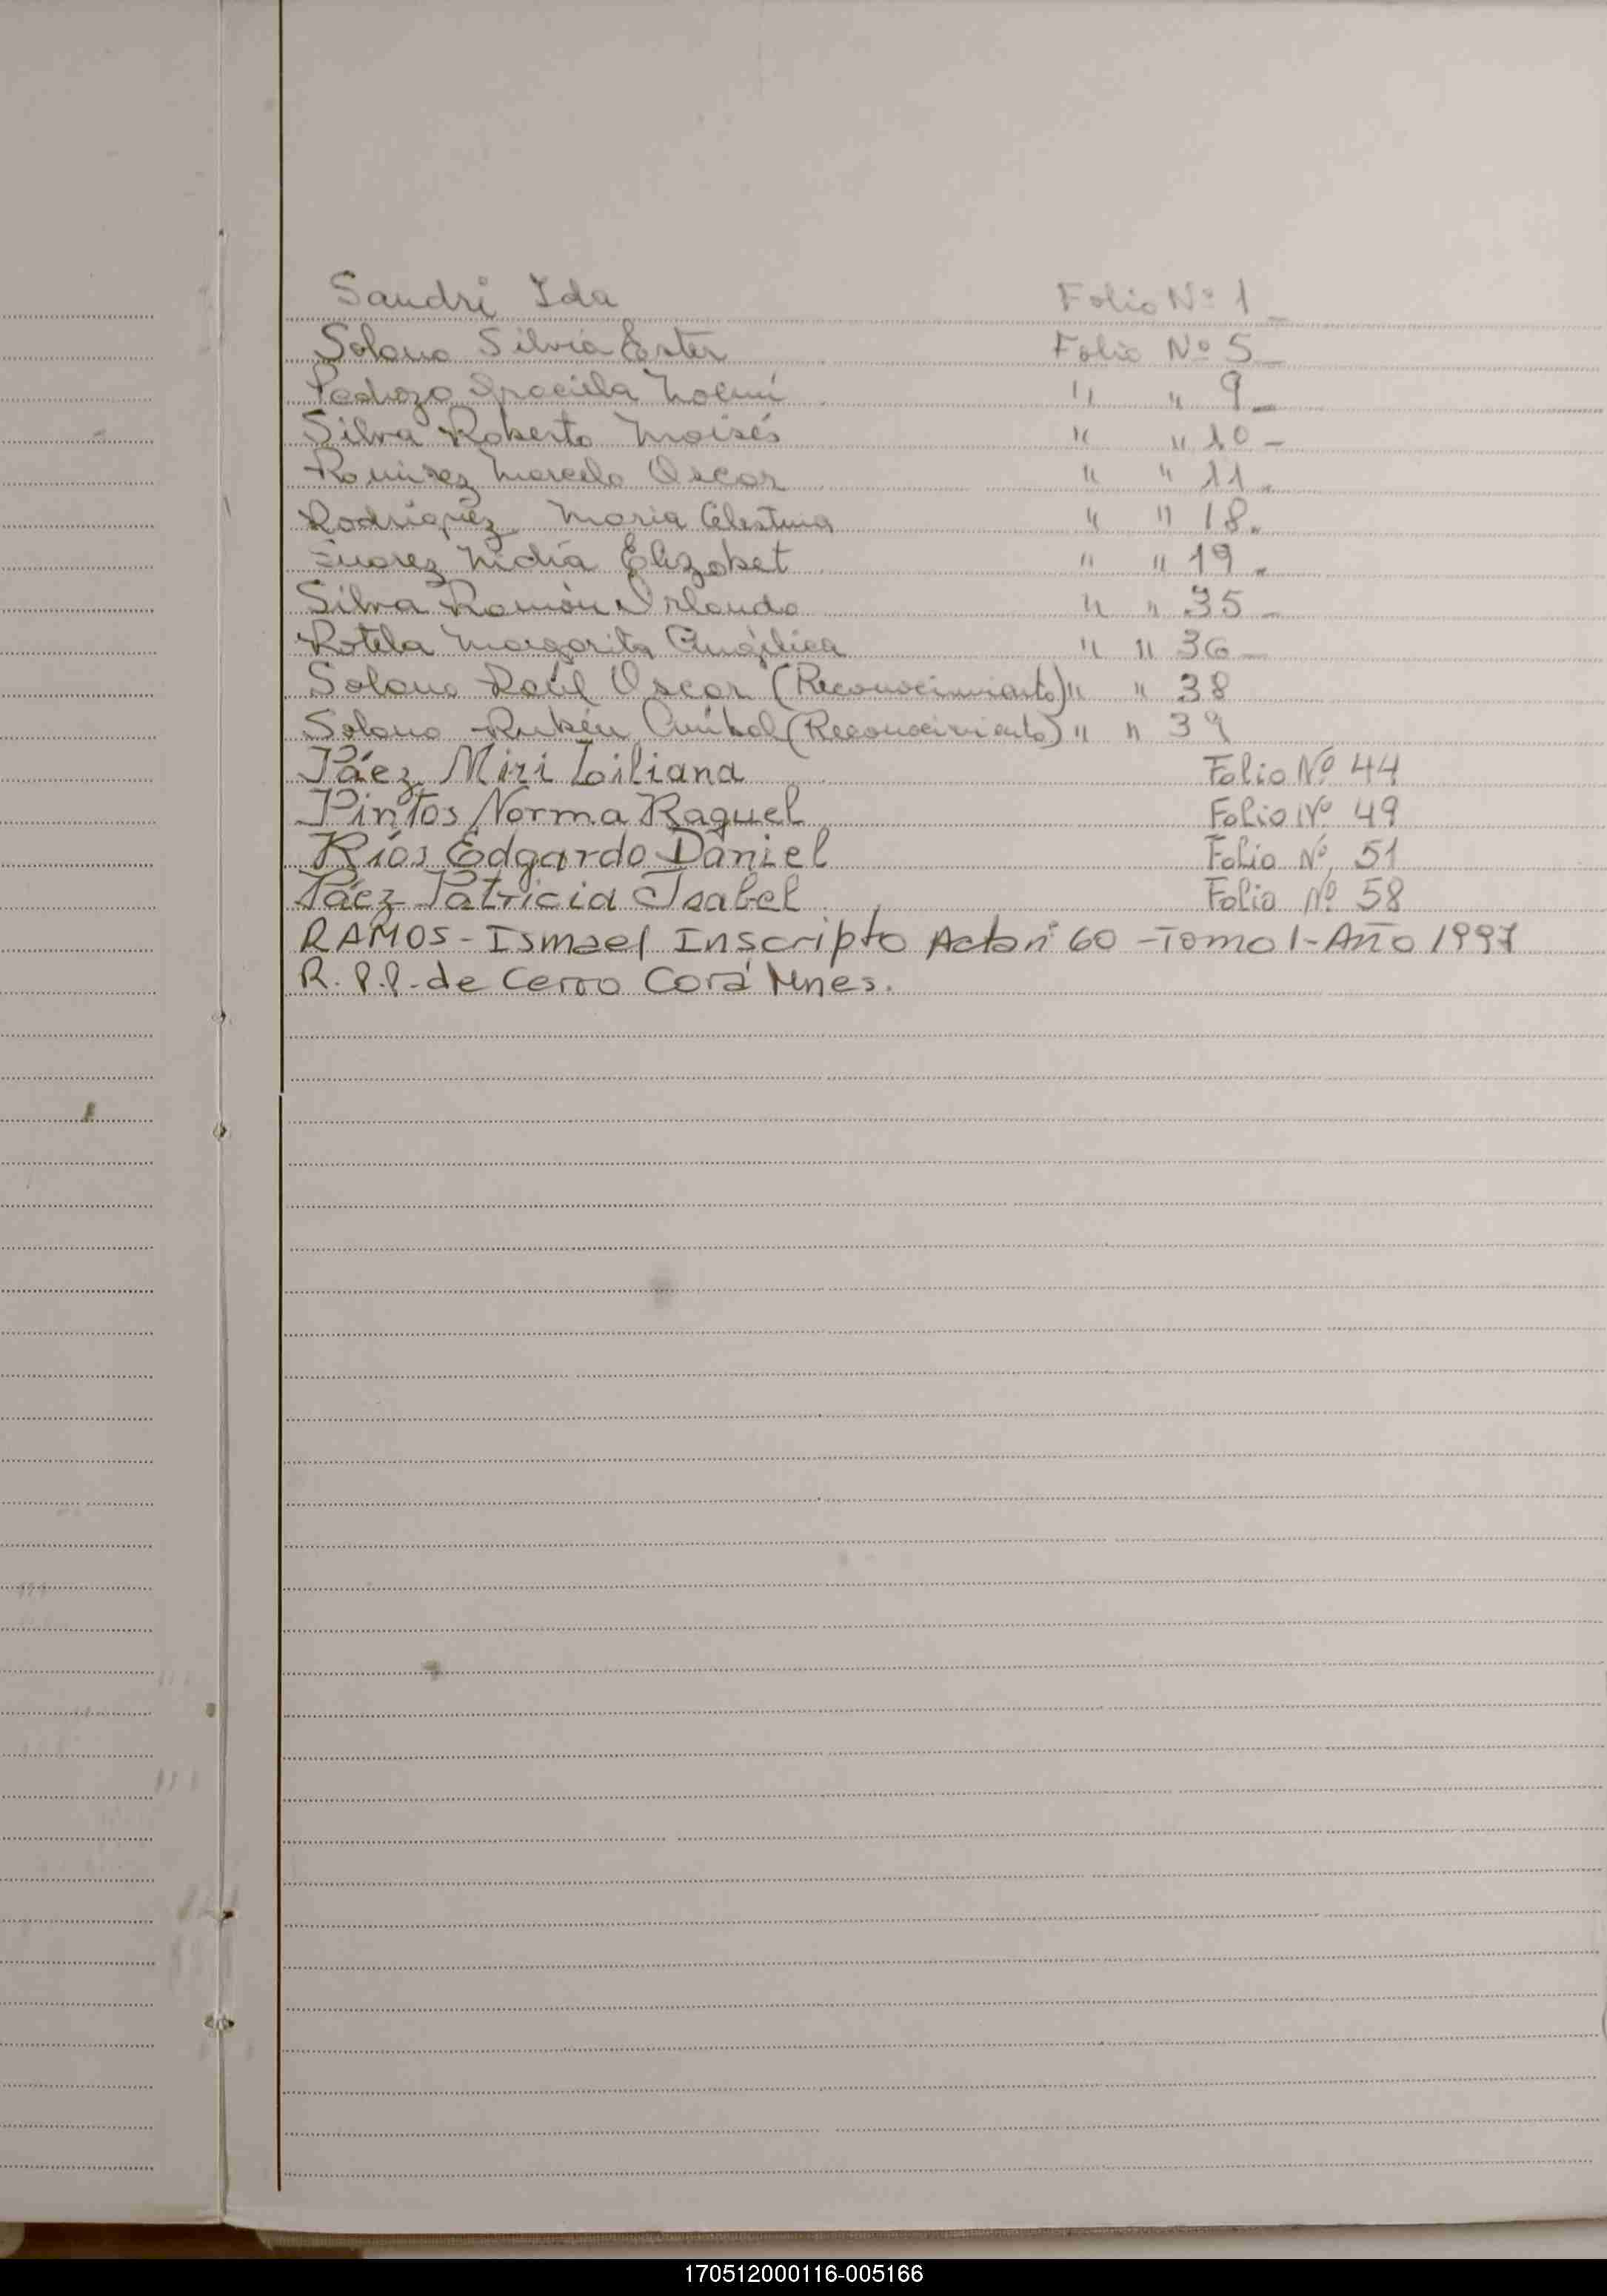 Sandri Ida Folio Nº 1_
Solano Silvia Ester Folio Nº 5_
Pedrozo Graciela Noemí " " 9_
Silva Roberto Moisés " " 10_
Ramirez Marcelo Oscar " " 11_
Rodríguez Maria Celestina " " 18_
Suarez Nidia Elizabet " " 19_
Silva Ramón Orlando " " 35_
Rotela Margarita Angélica " " 36_
Solano Raúl Oscar (Reconocimiento) " " 38
Solano Rubén Aníbal (Reconocimiento) " " 39
Páez Miri Liliana Folio Nº 44
Pintos Norma Raquel Folio Nº 49
Ríos Edgardo Daniel Folio Nº 51
Páez Patricia Isabel Folio Nº 58
RAMOS - Ismael Inscripto Acta nº 60 - Tomo 1 - Año 1997
R. P.P. de Cerro Corá Mnes.
170512000116-005166